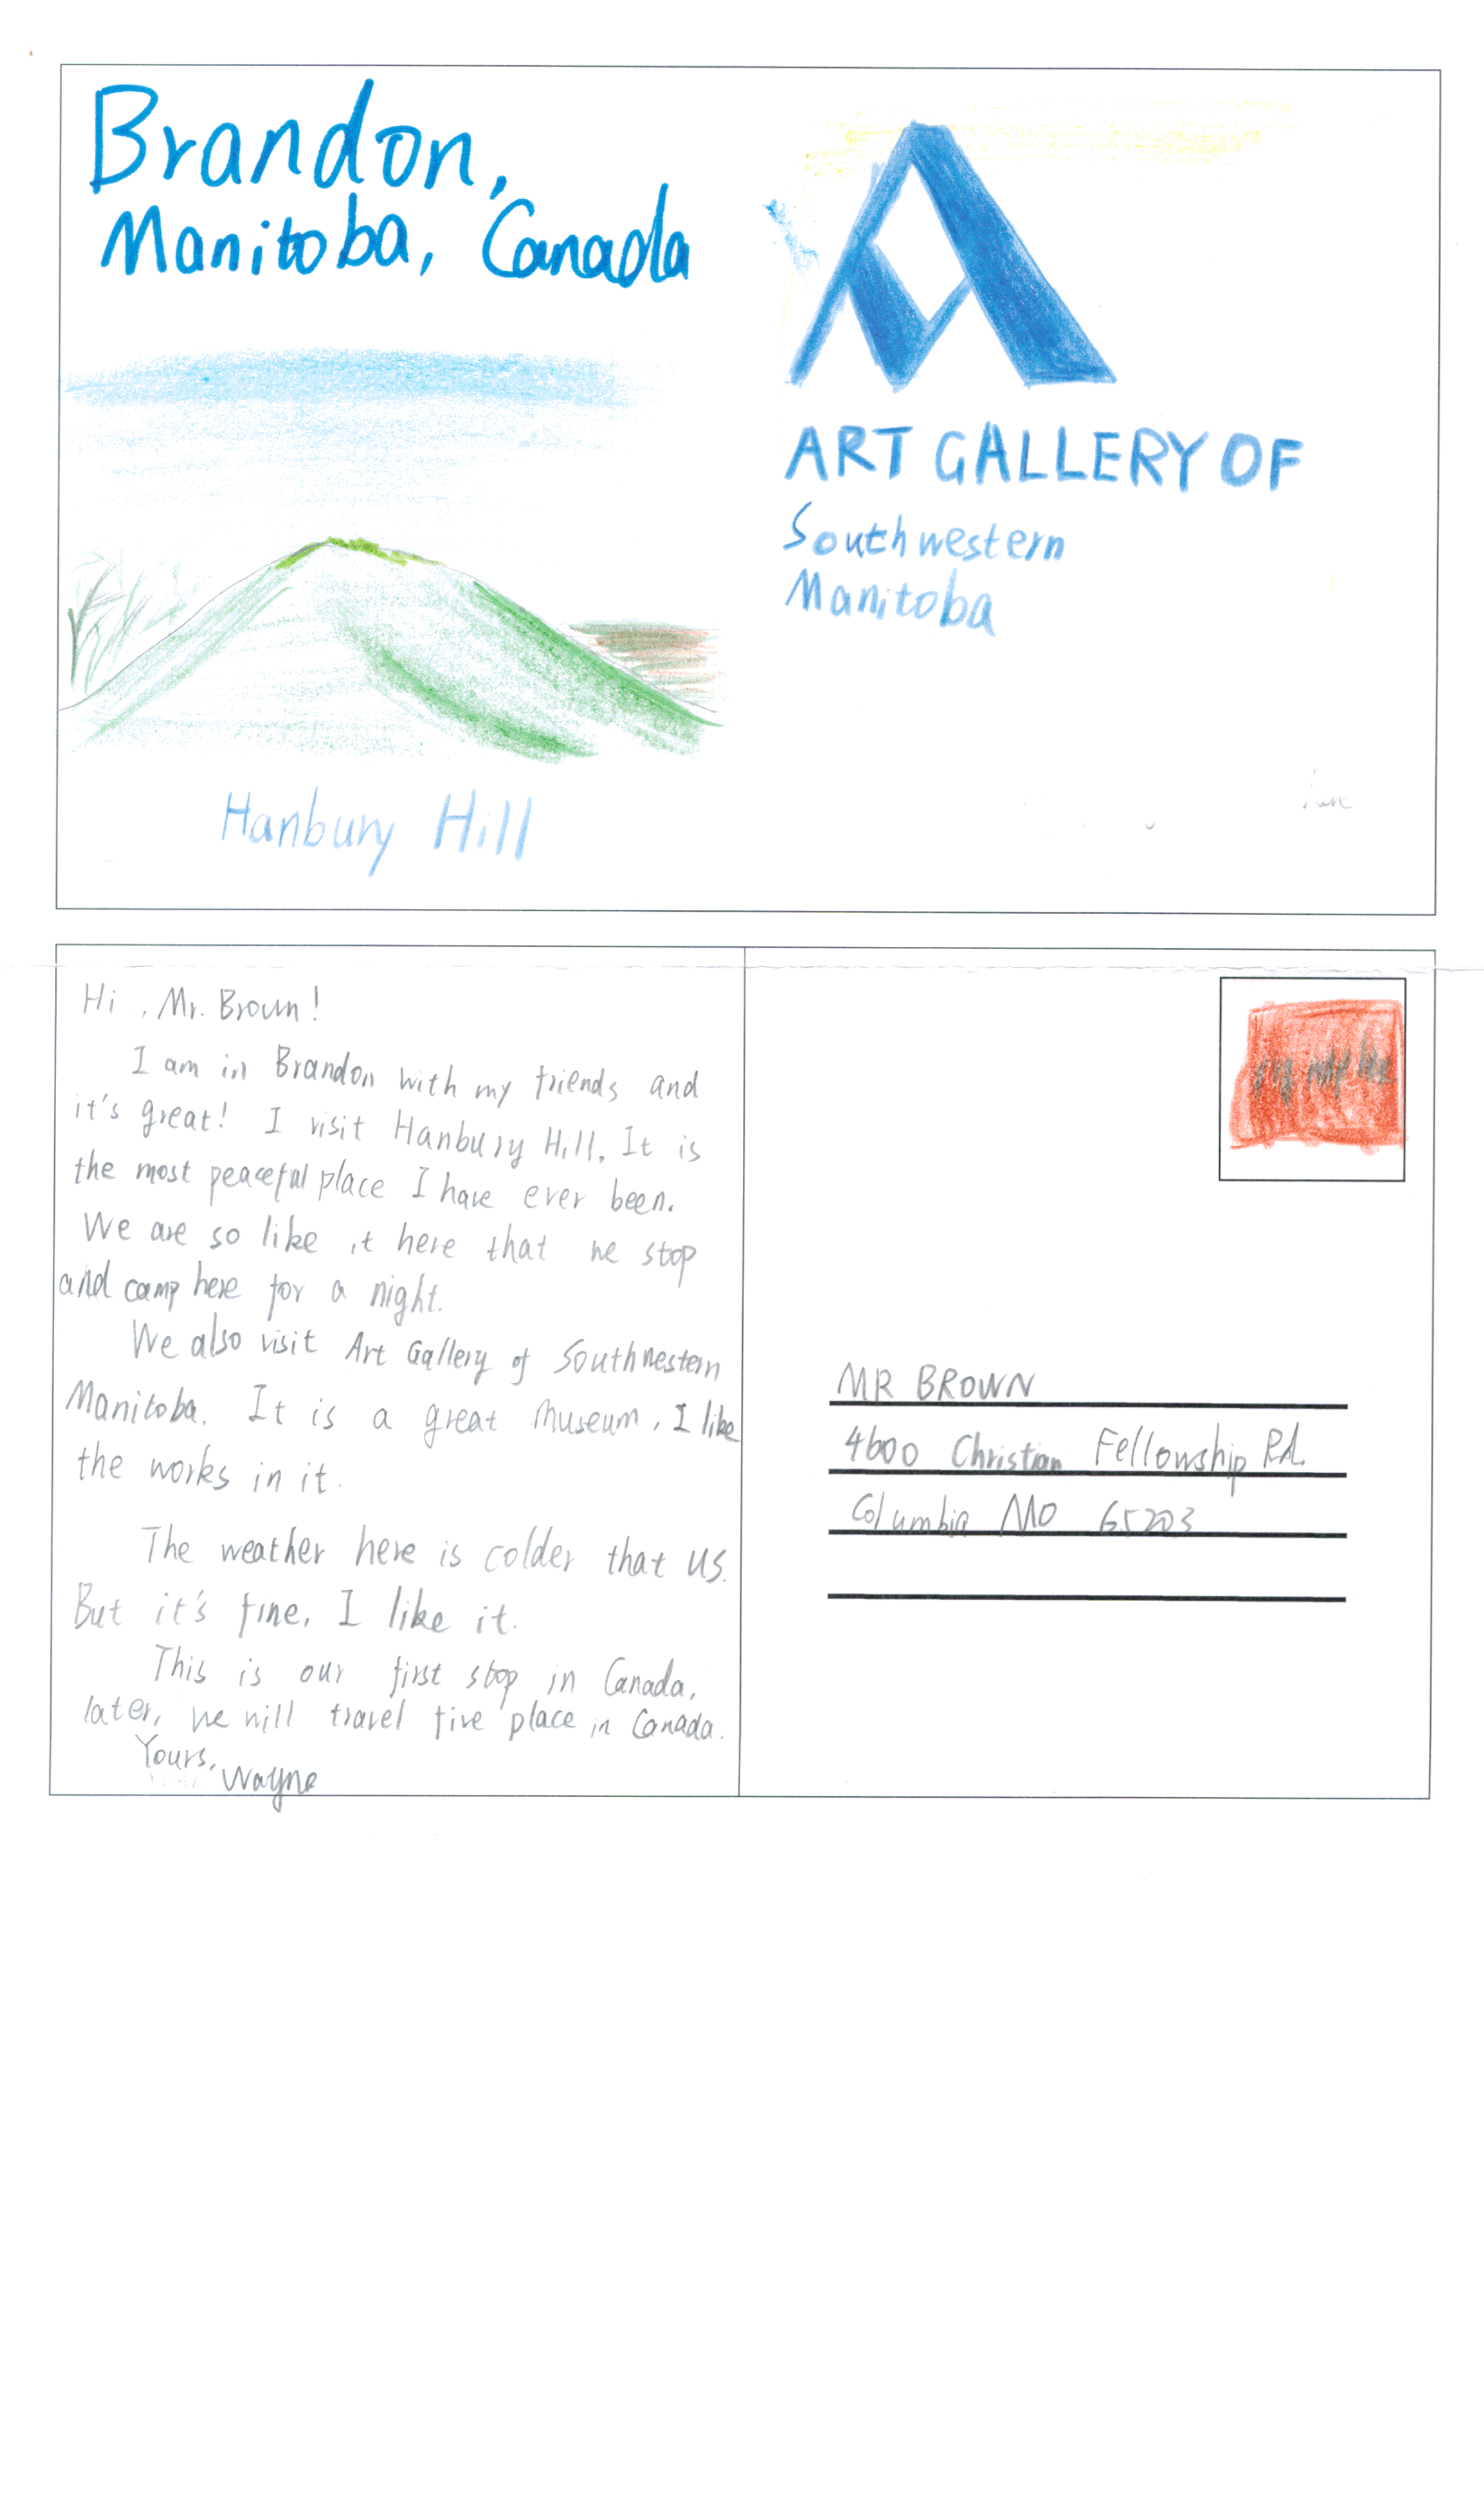 Brandon,
Manitoba, Canada
Hanbury Hill
ART GALLERY OF
Southwestern
Manitoba
Hi, Mr. Brown!
I am in Brandon with my friends and
it's great! I visit Hanbury Hill. It is
the most peaceful place I have ever been.
We are so like it here that we stop
and camp here for a night.
We also visit Art Gallery of Southwestern
Manitoba. It is a great museum, I like
the works in it.
The weather here is colder that US.
But it's fine, I like it.
This is our first stop in Canada,
later, we will travel five place in Canada.
Yours,
Wayne
MR BROWN
4600 Christian Fellowship Rd.
Columbia MO 65203